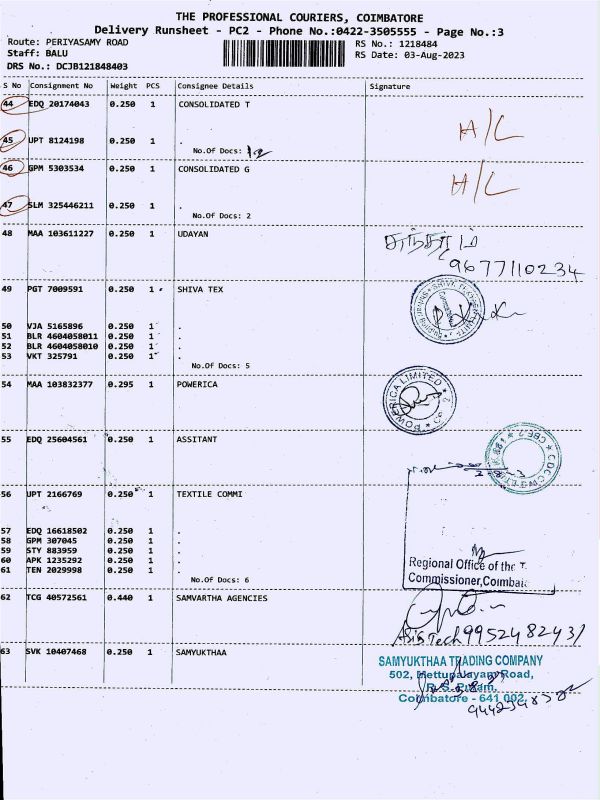 THE PROFESSIONAL COURIERS, COIMBATORE
Delivery Runsheet - PC2 - Phone No.:0422-3505555 - Page No.:3
Route: PERIYASAMY ROAD RS No.: 1218484
Staff: BALU RS Date: 03-Aug-2023
DRS No.: DCJB121848403
S No Consignment No Weight PCS Consignee Details Signature
44 EDQ 20174043 0.250 1 CONSOLIDATED T
A/C
45 UPT 8124198 0.250 1 .
No.Of Docs: 12
46 GPM 5303534 0.250 1 CONSOLIDATED G
A/C
47 SLM 325446211 0.250 1 .
No.Of Docs: 2
48 MAA 103611227 0.250 1 UDAYAN
9677110234
49 PGT 7009591 0.250 1 SHIVA TEX
50 VJA 5165896 0.250 1 .
51 BLR 4604058011 0.250 1 .
52 BLR 4604058010 0.250 1 .
53 VKT 325791 0.250 1 .
No.Of Docs: 5
54 MAA 103832377 0.295 1 POWERICA
POWERICA LIMITED
55 EDQ 25604561 0.250 1 ASSITANT
56 UPT 2166769 0.250 1 TEXTILE COMMI
57 EDQ 16618502 0.250 1 .
58 GPM 307045 0.250 1 .
59 STY 883959 0.250 1 .
60 APK 1235292 0.250 1 .
61 TEN 2029998 0.250 1 .
No.Of Docs: 6
Regional Office of the T.
Commissioner,Coimbat
62 TCG 40572561 0.440 1 SAMVARTHA AGENCIES
63 SVK 10407468 0.250 1 SAMYUKTHAA
SAMYUKTHAA TRADING COMPANY
502, Mettupalayam Road,
R.S. Puram,
Coimbatore - 641 002.